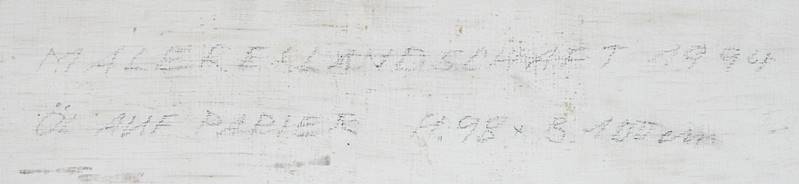 MALEREI/LANDSCHAFT 1994
ÖL AUF PAPIER H.98 x B.100cm